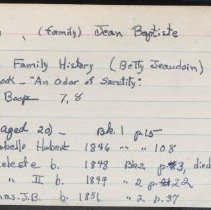 , (family) Jean Baptiste
Family History (Betty Jeaudoin)
ook - "An Odor of Sanctity"
Page 7, 8
(aged 20) - Bk. 1 p15
abelle Hubert 1846 " " 108
eleste b. 1848 Bk2 p#3, died
" II b. 1849 " 2 p#22
as. J.B. b. 1851 " 2 p.37